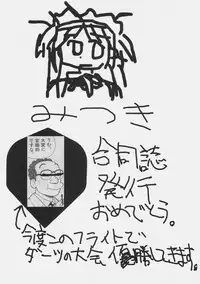 みつき
合同誌
発行
おめでとう。
今度このフライトで
ダーツの大会 優勝してきます。